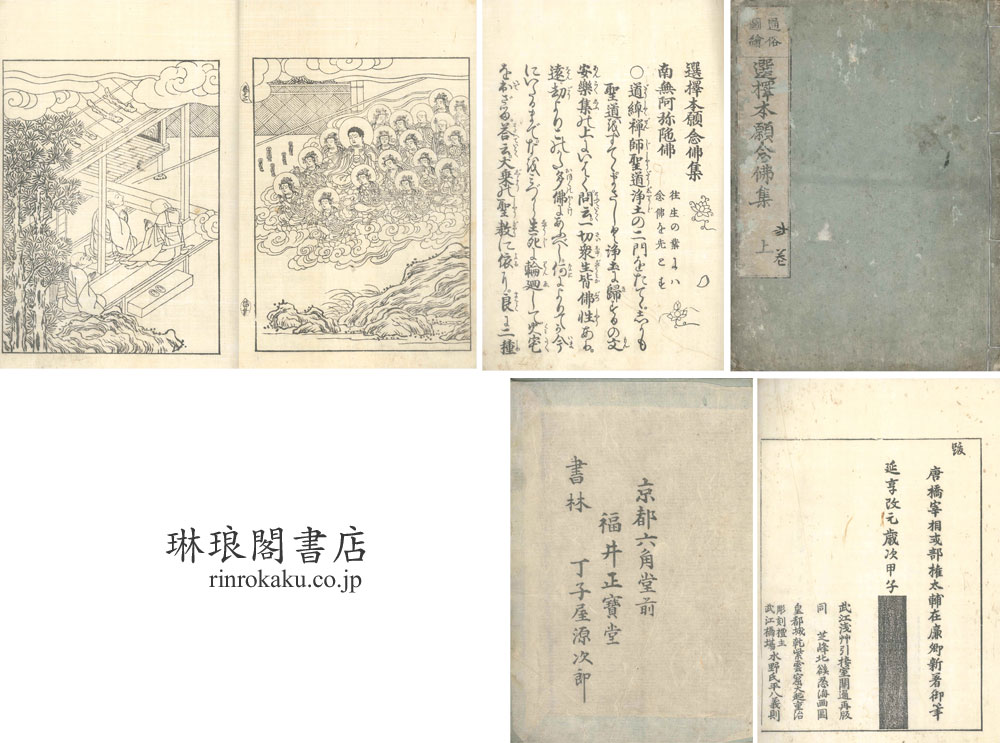 通俗
圖繪
選擇本願念佛集
上
選擇本願念佛集
往生の業よハ
念佛を先とす
南無阿弥陀佛
〇道綽禅師聖道浄土の二門をたてゝしかも
聖道をすてゝまさしく浄土に歸するの文
安樂集の上にいはく問云一切衆生皆佛性あり
遠劫よりこのかた多佛にあふべし何によりてか今
にいたるまでなを
生死に輪廻して火宅
をいでざる答云大乗の聖教に依り良に二種
跋
唐橋宰相式部権太輔在廉卿新著御筆
延享改元歳次甲子
武江浅艸引接室關通再版
同 芝峰北
慈海画圖
皇都城乾紫雲窟
重治
彫刻檀主
武江橋場水野氏平八義則
京都六角堂前
福井正寶堂
書林 丁子屋源次郎
琳琅閣書店
rinrokaku.co.jp